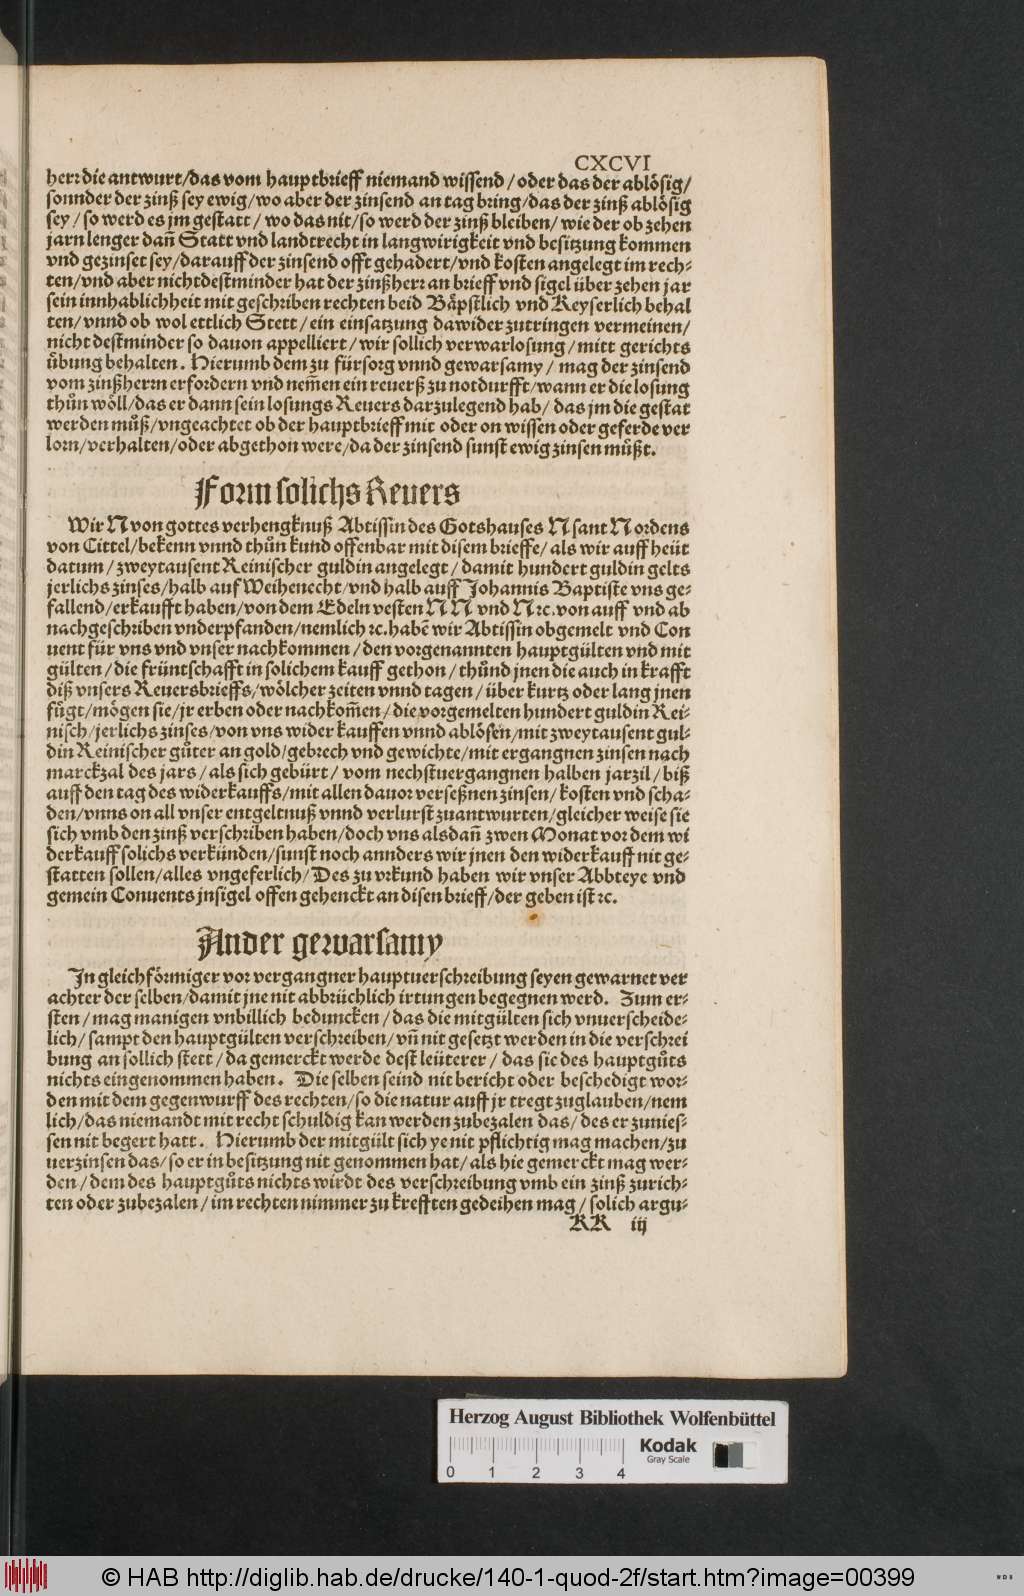 CXCVI
herr die antwurt/das vom hauptbrieff niemand wissend/oder das der ablösig/
sonnder der zinß sey ewig/wo aber der zinsend an tag bring/das der zinß ablösig
sey/so werd es jm gestatt/wo das nit/so werd der zinß bleiben/wie der ob zehen
jarn lenger dañ Statt vnd landtrecht in langwirigkeit vnd besitzung kommen
vnd gezinset sey/darauff der zinsend offt gehadert/vnd kosten angelegt im rech-
ten/vnd aber nichtdestminder hat der zinßherr an brieff vnd sigel über zehen jar
sein innhablichheit mit geschriben rechten beid Bäpstlich vnd Keyserlich behal
ten/vnnd ob wol ettlich Stett/ein einsatzung dawider zutringen vermeinen/
nicht destminder so dauon appelliert/wir sollich verwarlosung/mitt gerichts
übung behalten. Hierumb dem zu fürsorg vnnd gewarsamy/mag der zinsend
vom zinßherrn erfordern vnd nem̃en ein reuerß zu notdurfft/wann er die losung
thůn wöll/das er dann sein losungs Reuers darzulegend hab/das jm die gestat
werden můß/vngeachtet ob der hauptbrieff mit oder on wissen oder geferde ver
lorn/verhalten/oder abgethon were/da der zinsend sunst ewig zinsen můßt.
Form solichs Reuers
Wir N von gottes verhengknuß Abtissin des Gotshauses N sant N ordens
von Cittel/bekenn vnnd thůn kund offenbar mit disem brieffe/als wir auff heüt
datum/zweytausent Reinischer guldin angelegt/damit hundert guldin gelts
jerlichs zinses/halb auf Weihenecht/vnd halb auff Johannis Baptiste vns ge-
fallend/erkaufft haben/von dem Edeln vesten N N vnd N ꝛc. von auff vnd ab
nachgeschriben vnderpfanden/nemlich ꝛc. habẽ wir Abtissin obgemelt vnd Con
uent für vns vnd vnser nachkommen/den vorgenannten hauptgülten vnd mit
gülten/die früntschafft in solichem kauff gethon/thůnd jnen die auch in krafft
diß vnsers Reuersbrieffs/wölcher zeiten vnnd tagen/über kurtz oder lang jnen
fůgt/mögen sie/jr erben oder nachkom̃en/die vorgemelten hundert guldin Rei-
nisch/jerlichs zinses/von vns wider kauffen vnnd ablösen/mit zweytausent gul-
din Reinischer gůter an gold/gebrech vnd gewichte/mit ergangnen zinsen nach
marckzal des jars/als sich gebürt/vom nechstuergangnen halben jarzil/biß
auff den tag des widerkauffs/mit allen dauor verseßnen zinsen/kosten vnd scha-
den/vnns on all vnser entgeltnuß vnnd verlurst zuantwurten/gleicher weise sie
sich vmb den zinß verschriben haben/doch vns alsdañ zwen Monat vor dem wi
derkauff solichs verkünden/sunst noch annders wir jnen den widerkauff nit ge-
statten sollen/alles vngeferlich/Des zu vrkund haben wir vnser Abbteye vnd
gemein Conuents jnsigel offen gehenckt an disen brieff/der geben ist ꝛc.
Ander gewarsamy
In gleichförmiger vor vergangner hauptuerschreibung seyen gewarnet ver
achter der selben/damit jne nit abbrüchlich irtungen begegnen werd. Zum er-
sten/mag manigen vnbillich beduncken/das die mitgülten sich vnuerscheide-
lich/sampt den hauptgülten verschreiben/vñ nit gesetzt werden in die verschrei
bung an sollich stett/da gemerckt werde dest leüterer/das sie des hauptgůts
nichts eingenommen haben. Die selben seind nit bericht oder beschedigt wor-
den mit dem gegenwurff des rechten/so die natur auff jr tregt zuglauben/nem
lich/das niemandt mit recht schuldig kan werden zubezalen das/des er zunies-
sen nit begert hatt. Hierumb der mitgült sich ye nit pflichtig mag machen/zu
uerzinsen das/so er in besitzung nit genommen hat/als hie gemerckt mag wer-
den/dem des hauptgůts nichts wirdt des verschreibung vmb ein zinß zurich-
ten oder zubezalen/im rechten nimmer zu krefften gedeihen mag/solich argu-
KK iij
Herzog August Bibliothek Wolfenbüttel
Kodak
Gray Scale
0 1 2 3 4
© HAB http://diglib.hab.de/drucke/140-1-quod-2f/start.htm?image=00399